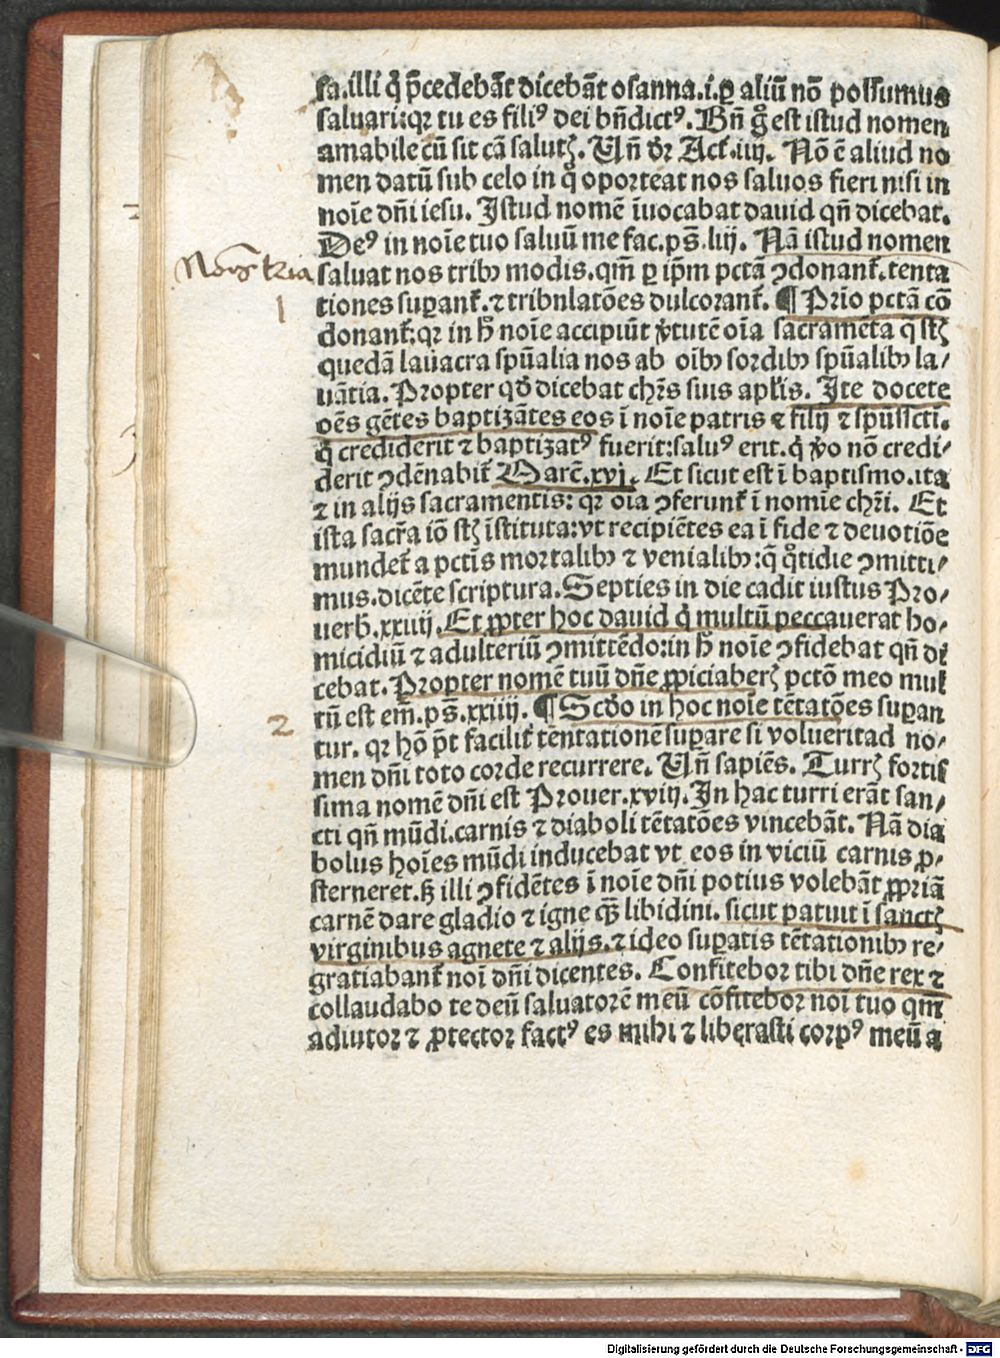 sa.illi q̇ p̄cedebāt dicebāt osanna.i.ꝑ aliū nō possumus
saluari:qꝛ tu es filiꝰ dei bn̄dictꝰ. Bn̄ gͦ est istud nomen
amabile cū sit cā salutꝭ. Vn̄ dꝛ Act.iiij. Nō ē aliud no
men datū sub celo in q̊ oporteat nos saluos fieri nisi in
noīe dn̄i iesu. Istud nomē īuocabat dauid qn̄ dicebat.
Deꝰ in noīe tuo saluū me fac.ps̄.liij. Nā istud nomen
saluat nos tribꝫ modis.qm̄ ꝑ ip̄m pctā ꝯdonant᷑.tenta
tiones suꝑant᷑.⁊ tribnlatōes dulcorant᷑. ¶ Prīo pctā cō
donant᷑:qꝛ in h̄ noīe accipiūt v̓tutē oīa sacramēta q̄ st̄ꝭ
quedā lauacra spūalia nos ab oībꝫ sordibꝫ spūalibꝫ la/
uātia. Propter qd̓ dicebat chr̄s suis apl̓is. Ite docete
oēs gētes baptizātes eos ī noīe patris ⁊ filij ⁊ spūssctī.
q̇ crediderit ⁊ baptizatꝰ fuerit:saluꝰ erit.q̇ v̓o nō credi/
derit ꝯdēnabit᷑ Marc̄.xvj. Et sicut est ī baptismo.ita
⁊ in alijs sacramentis: qꝛ oīa ꝯferunt᷑ ī nomīe chr̄i. Et
ista sacr̄a iō st̄ꝭ īstituta:vt recipiētes ea ī fide ⁊ deuotiōe
mundet᷑ a pctīs mortalibꝫ ⁊ venialibꝫ:q̄ q̊tidie ꝯmitti/
mus.dicēte scriptura. Septies in die cadit iustus Pro/
uerb̓.xxiiij. Et ꝓpter hoc dauid q̇ multū peccauerat ho/
micidiū ⁊ adulteriū ꝯmittēdo:in h̄ noīe ꝯfidebat qn̄ di
cebat. Propter nomē tuū dn̄e ꝓpiciaberꝭ pctō meo mul
tū est em̄.ps̄.xxiiij. ¶ Scd̓o in hoc noīe tētatōes suꝑan
tur. qꝛ hō p̄t facilit᷑ tentationē suꝑare si voluerit ad no/
men dn̄i toto corde recurrere. Vn̄ sapiēs. Turrꝭ fortis
sima nomē dn̄i est Prouer.xviij. In hac turri erāt san/
cti qn̄ mūdi.carnis ⁊ diaboli tētatōes vincebāt. Nā dia
bolus hoīes mūdi inducebat vt eos in viciū carnis ꝓ/
sterneret.sꝫ illi ꝯfidētes ī noīe dn̄i potius volebāt ꝓpriā
carnē dare gladio ⁊ igne qꝫ̄ libidini. sicut patuit ī sanctꝭ
virginibus agnete ⁊ alijs.⁊ ideo suꝑatis tētationibꝫ re/
gratiabant᷑ noī dn̄i dicentes. Confitebor tibi dn̄e rex ⁊
collaudabo te deū saluatorē meū cōfitebor noī tuo qm̄
adiutor ⁊ ꝓtector factꝰ es mihi ⁊ liberasti corpꝰ meū a
1
2
Digitalisierung gefördert durch die Deutsche Forschungsgemeinschaft - DFG